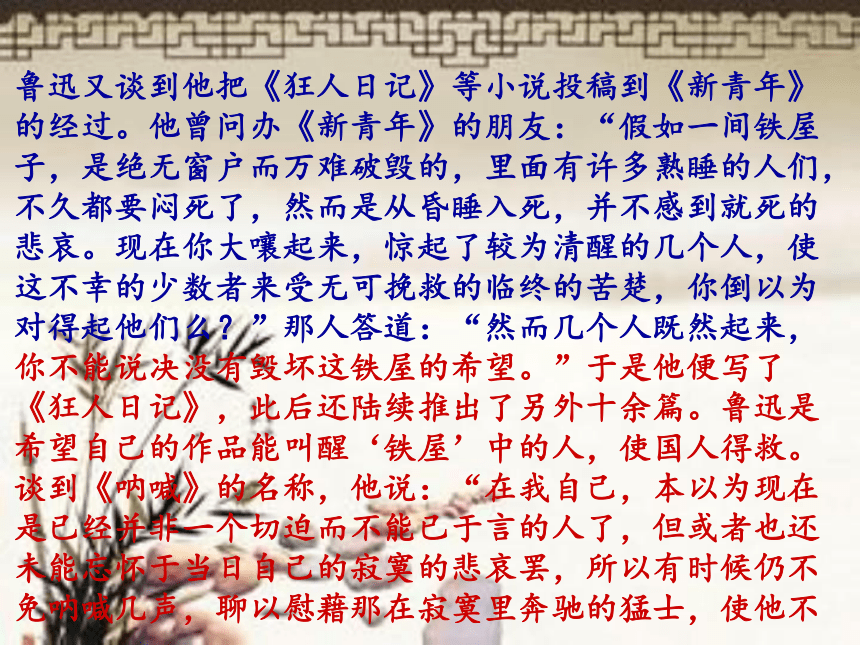 鲁迅又谈到他把《狂人日记》等小说投稿到《新青年》
的经过。他曾问办《新青年》的朋友：“假如一间铁屋
子，是绝无窗户而万难破毁的，里面有许多熟睡的人们，
不久都要闷死了，然而是从昏睡入死，并不感到就死的
悲哀。现在你大嚷起来，惊起了较为清醒的几个人，使
这不幸的少数者来受无可挽救的临终的苦楚，你倒以为
对得起他们么？”那人答道：“然而几个人既然起来，
你不能说决没有毁坏这铁屋的希望。”于是他便写了
《狂人日记》，此后还陆续推出了另外十余篇。鲁迅是
希望自己的作品能叫醒‘铁屋’中的人，使国人得救。
谈到《呐喊》的名称，他说：“在我自己，本以为现在
是已经并非一个切迫而不能已于言的人了，但或者也还
未能忘怀于当日自己的寂寞的悲哀罢，所以有时候仍不
免呐喊几声，聊以慰藉那在寂寞里奔驰的猛士，使他不